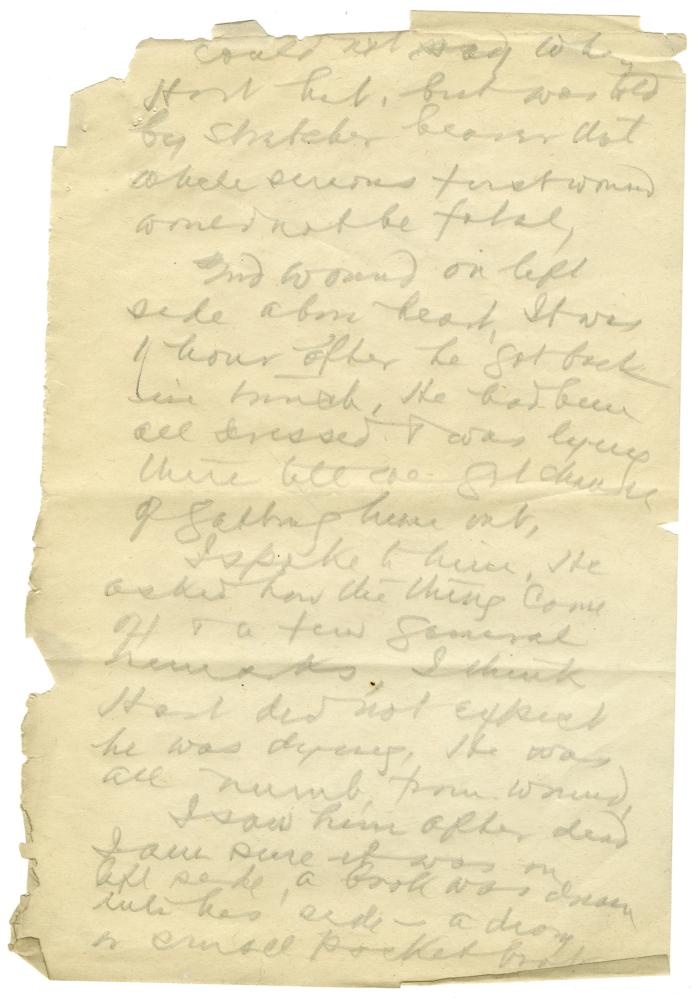 could not say why
Hart hit, but was told
by stretcher bearer that
while serious first wound
would not be fatal,
2nd wound on left
side above heart, It was
1 hour after he got back
in trench, He had been
all dressed & was lying
there till we got chance
of getting him out,
I spoke to him, He
asked how the thing come
off & a few general
remarks, I think
Hart did not expect
he was dying, He was
all numb from wound,
I saw him after dead
I am sure it was on
left side, a book was driven
into his side - a diary
or small pocket book